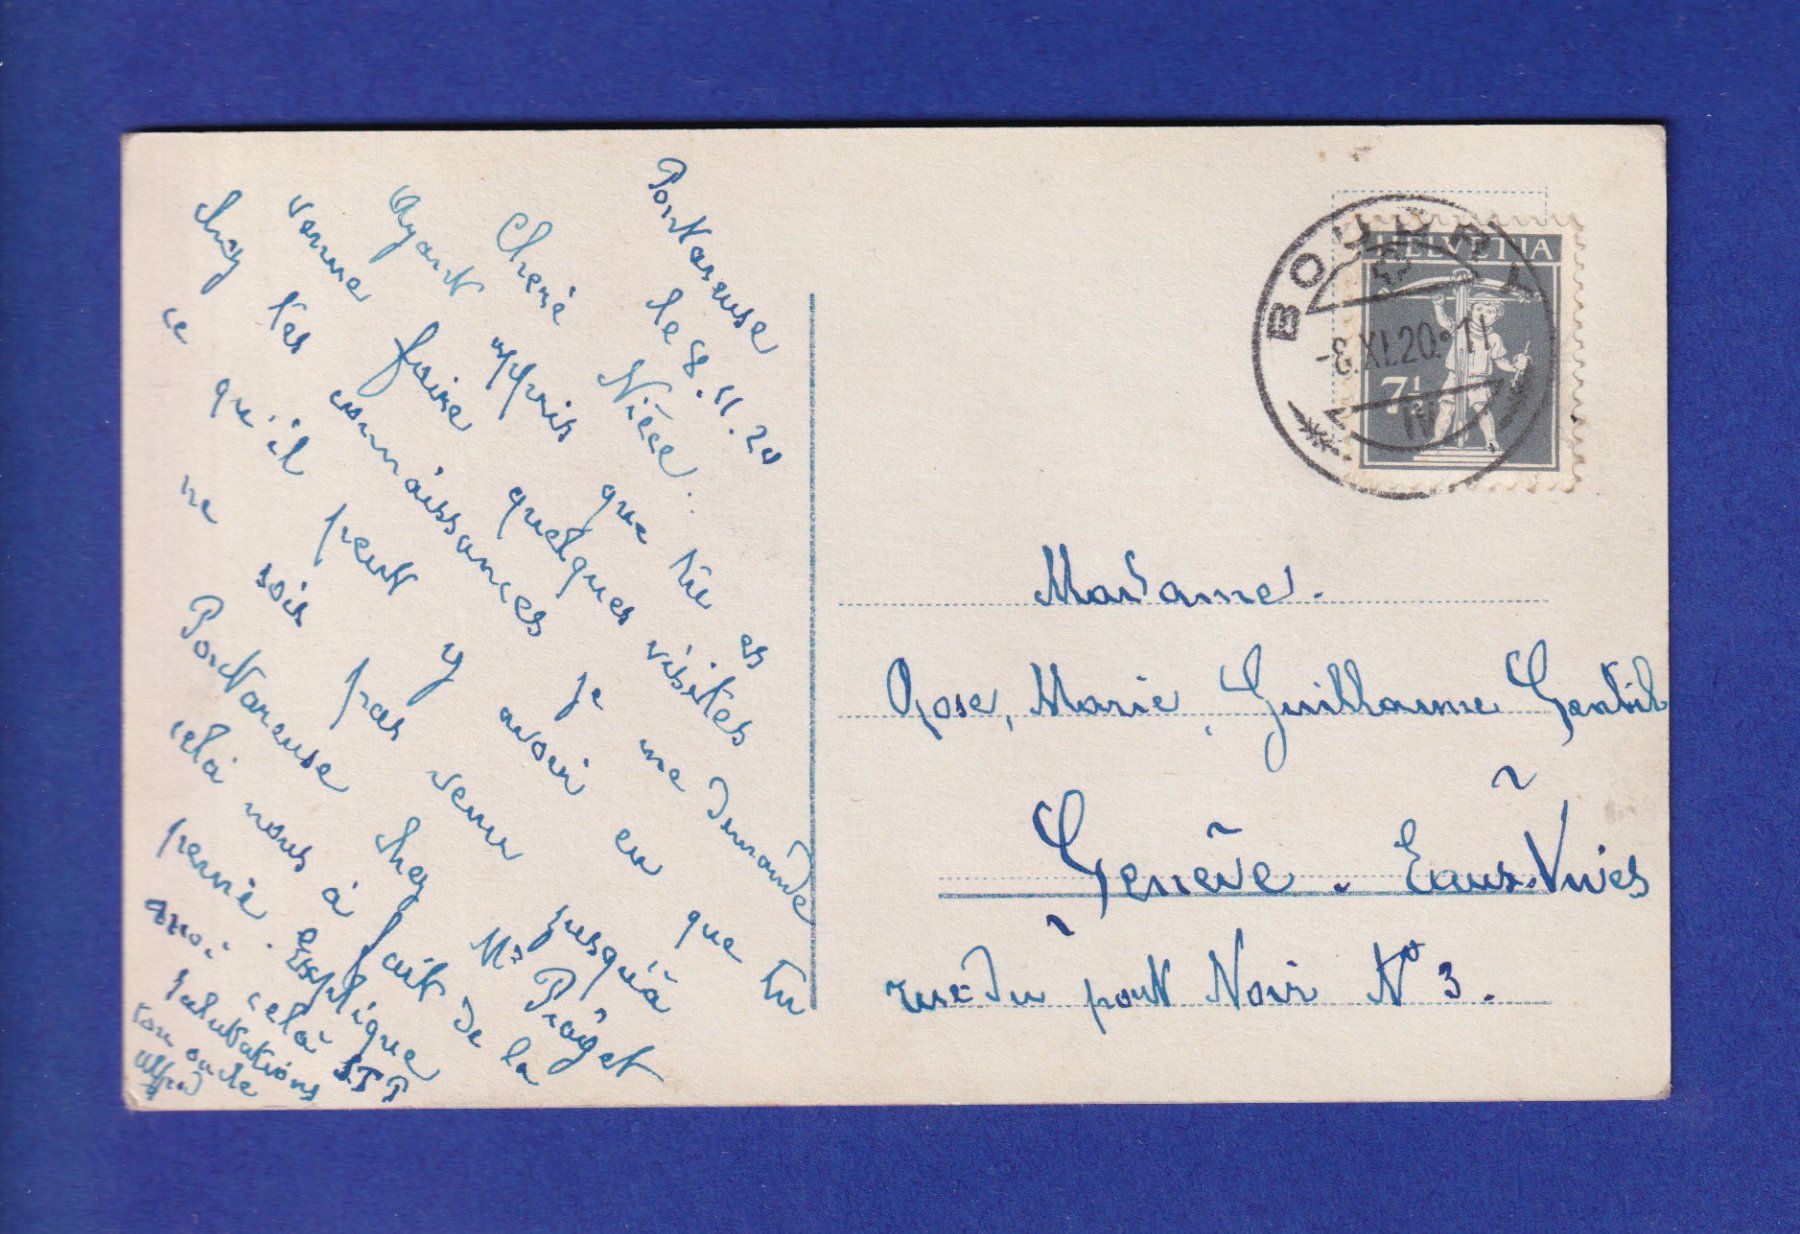 Pontareuse
le 8.11.20
Chère Nièce.
Ayant appris que tu es
venue faire quelques visites
chez tes connaissances je me demande
ce qu'il peut y avoir eu que tu
ne sois pas venu jusqu'à
Pontareuse chez Mr Piaget
celà nous à fait de la
peine. Explique
moi celà S.T.P
Salutations
ton oncle
Alfred
BOUDRY
-8.XI.20.-11
IV
HELVETIA
7½
Madame.
Rose, Marie, Guillaume Gentil
Genève. Eaux-Vives
rue du pont Noir No 3.